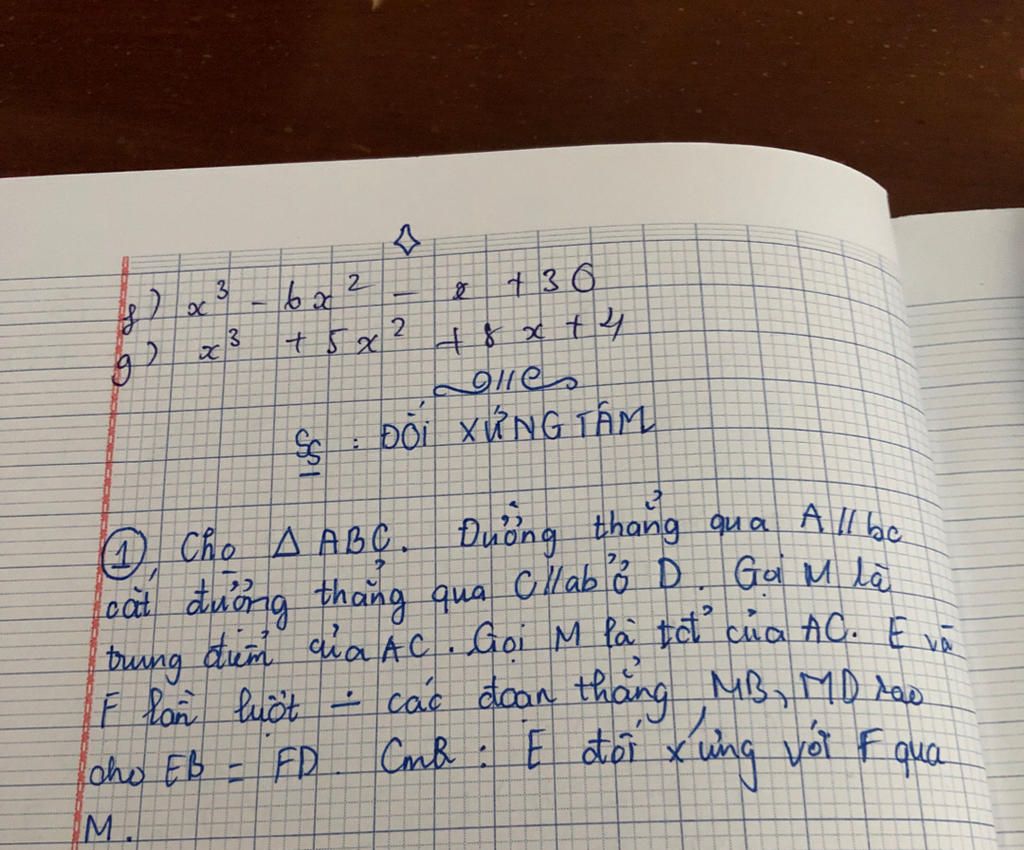 f) x³ - 6x² - x + 30
g) x³ + 5x² + 8x + 4
§ : ĐỐI XỨNG TÂM
① Cho Δ ABC. Đường thẳng qua A // bc
cắt đường thẳng qua C // ab ở D. Gọi M là
trung điểm của AC. Gọi M là tđ của AC. E và
F lần lượt ∸ các đoạn thẳng MB, MD sao
cho EB = FD. CmR : E đối xứng với F qua
M.